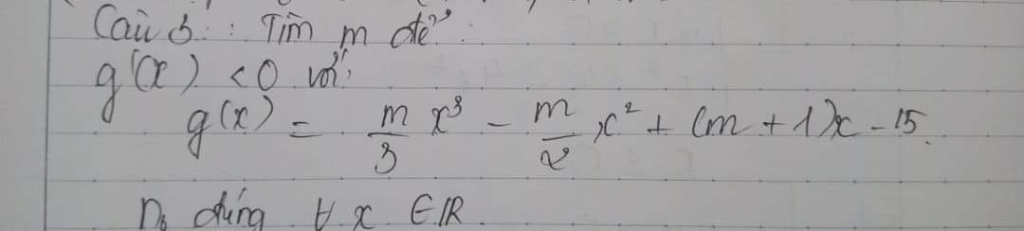 Câu 3: Tìm m để:
g'(x) < 0 với:
g(x) = m/3 x³ - m/2 x² + (m + 1)x - 15.
No đúng ∀ x ∈ R.